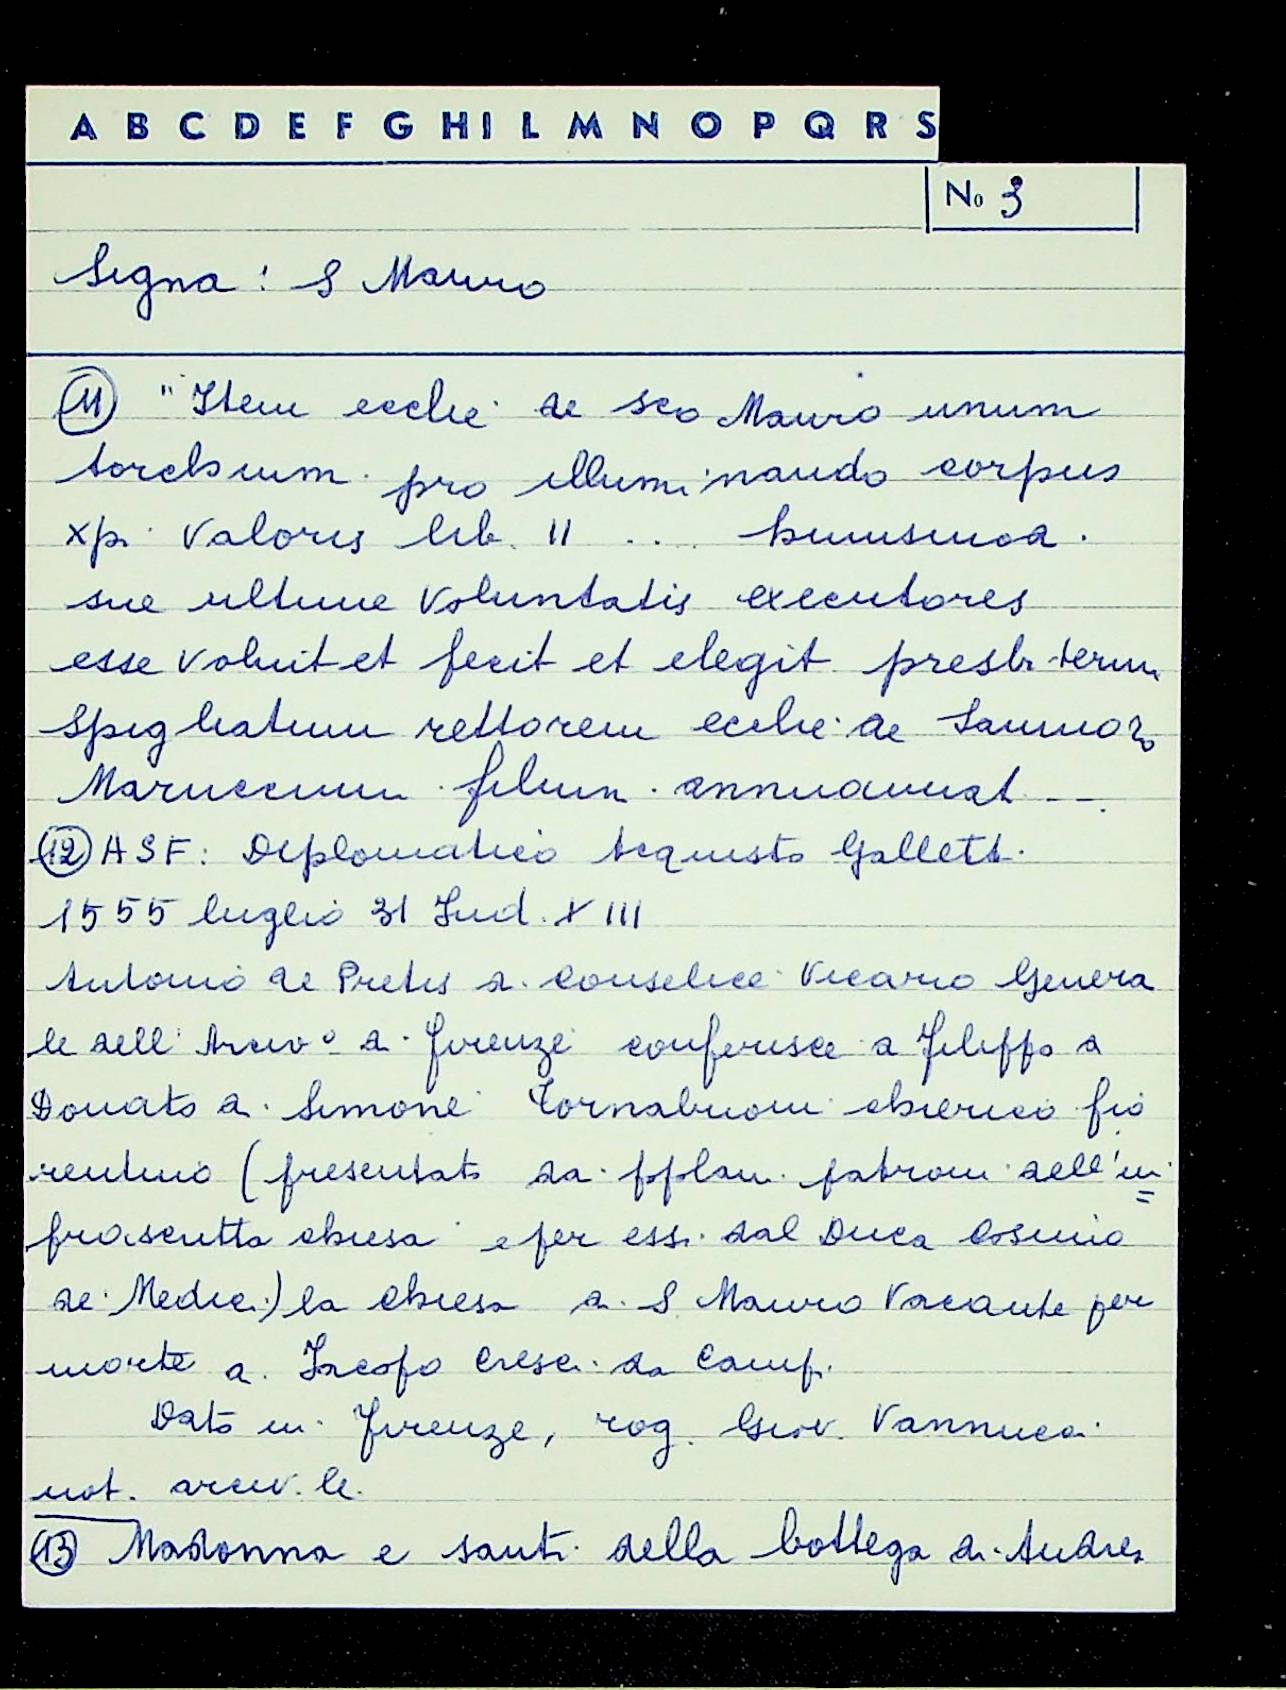 A B C D E F G H I L M N O P Q R S
No 3
Segna: S Mauro
(11) "Item ecclie de sco Mauro unum
torchium pro illuminando corpus
xpi valoris lib. II ....
sue ultime voluntatis executores
esse voluit et fecit et elegit presbiterum
Spigliatum rettorem ecclie de
Maruccium filium
(12) ASF: Diplomatico Acquisto Galletti
1555 luglio 31 Ind. XIII
Antonio de Pretis di Conselice Vicario Genera
le dell' Arcivo di Firenze conferisce a Filippo di
Donato di Simone Tornabuoni chierico fio
rentino (presentato da' ppolani patroni dell'in=
frascritta chiesa e per essi dal Duca Cosimo
de' Medici) la chiesa di S Mauro vacante per
morte di Iacopo Cresci da Campi
Dato in Firenze, rog. Giov. Vannucci
not. arciv.le.
(13) Madonna e santi della bottega di Andrea